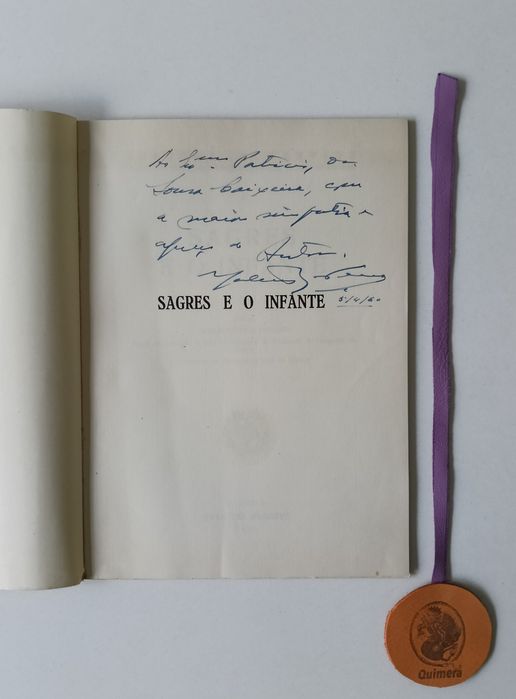 Ao Exmo Sr. Patricio de
Sousa Teixeira, com
a maior simpatia e
apreço do Autor.
SAGRES E O INFANTE 5/4/60
Quimera